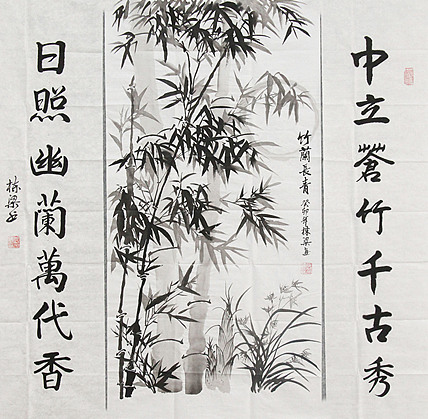 巾立蒼竹千古秀
竹蘭長青
癸卯年棟梁畫
日照幽蘭萬代香
棟梁書